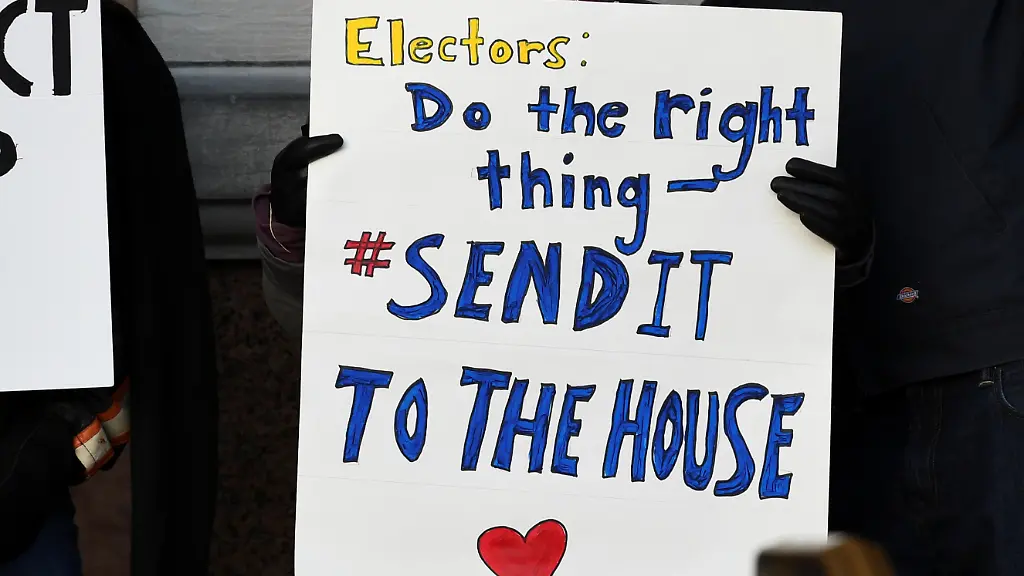 CT
Electors:
Do the right
thing —
#SENDIT
TO THE HOUSE